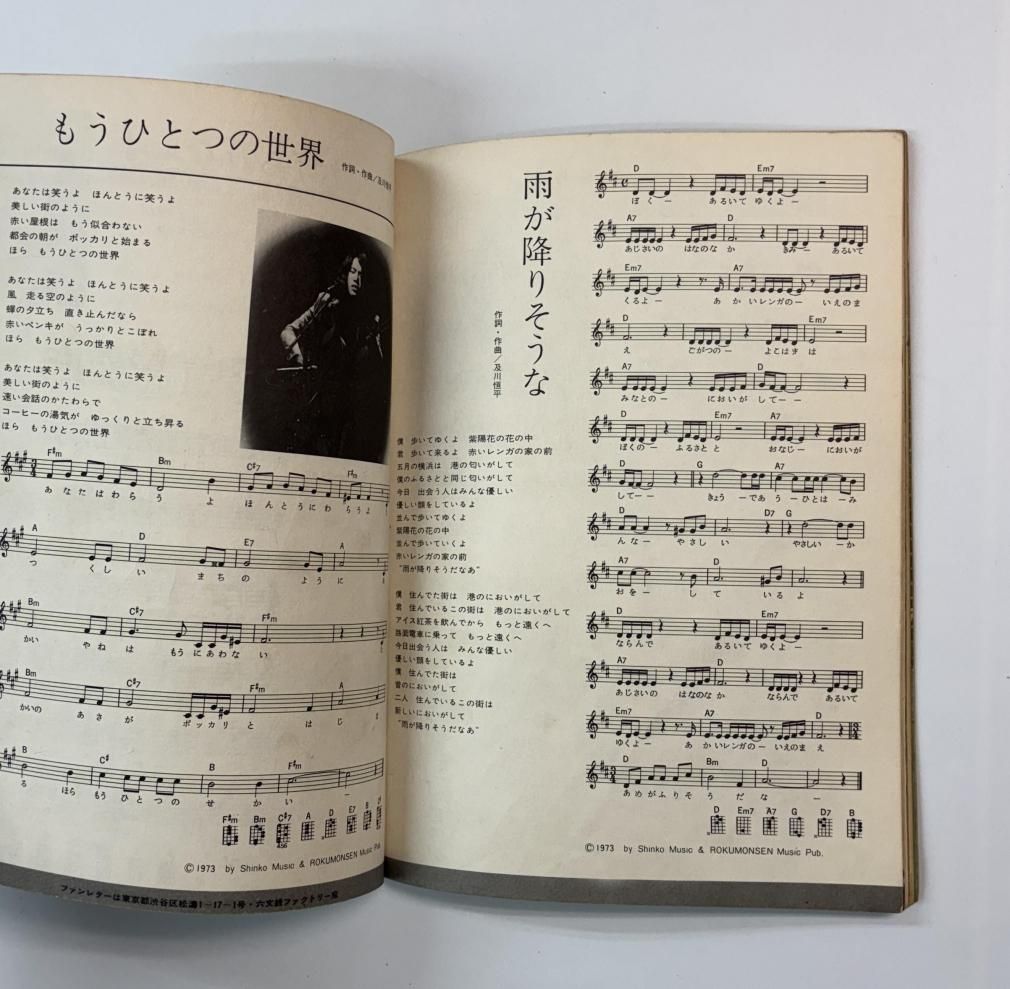 もうひとつの世界
作詞・作曲／及川恒平
あなたは笑うよ　ほんとうに笑うよ
美しい街のように
赤い屋根は　もう似合わない
都会の朝が　ポッカリと始まる
ほら　もうひとつの世界
あなたは笑うよ　ほんとうに笑うよ
風　走る空のように
蝉の夕立ち　直き止んだなら
赤いペンキが　うっかりとこぼれ
ほら　もうひとつの世界
あなたは笑うよ　ほんとうに笑うよ
美しい街のように
速い会話のかたわらで
コーヒーの湯気が　ゆっくりと立ち昇る
ほら　もうひとつの世界
Bm C#7 F#m
あ な た は わ ら う よ ほ ん と う に わ ら う よ
A D E7 A
つ く し い ま ち の よ う に
Bm C#7 F#m
かい や ね は もう に あ わ な い
Bm C#7 F#m A
かいの あ さ が ポ ッ カ リ と は じ ま
B C# B F#m
る ほら もう ひ と つ の せ か い ー
F#m Bm C#7 A D E7 B C#
456
©1973 by Shinko Music & ROKUMONSEN Music Pub.
ファンレターは東京都渋谷区松濤1－17－1号・六文銭ファクトリー宛
雨が降りそうな
作詞・作曲／及川恒平
僕　歩いてゆくよ　紫陽花の花の中
君　歩いて来るよ　赤いレンガの家の前
五月の横浜は　港の匂いがして
僕のふるさとと同じ匂いがして
今日　出会う人はみんな優しい
優しい顔をしているよ
並んで歩いてゆくよ
紫陽花の花の中
並んで歩いていくよ
赤いレンガの家の前
“雨が降りそうだなあ”
僕　住んでた街は　港のにおいがして
君　住んでいるこの街は　港のにおいがして
アイス紅茶を飲んでから　もっと遠くへ
路面電車に乗って　もっと遠くへ
今日出会う人は　みんな優しい
優しい顔をしているよ
僕　住んでた街は
昔のにおいがして
二人　住んでいるこの街は
新しいにおいがして
“雨が降りそうだなあ”
D Em7
ぼく ー あるいて ゆくよ ー
A7 D
あじさいの はなのな か きみー あるいて
Em7 A7
くるよ ー あ か いレンガのー いえのま
D Em7
え ごがつの ー よこはま は
A7 D
みなとの ー においが して ー ー
D Em7 A7
ぼくの ー ふるさと と おなじ ー においが
D G A7
して ー ー きょう ー であ う ー ひとは ー み
D D7 G
んな ー やさし い やさしい ー か
A7 D
おを ー し て いる よ
D Em7
ならんで あるいて ゆくよ ー
A7 D
あじさいの はなのな か ならんで あるいて
Em7 A7 D
ゆくよ ー あ か いレンガの ー いえのま え
D Bm D
あ め が ふ り そ う だ な ー
D Em7 A7 G D7 B
©1973 by Shinko Music & ROKUMONSEN Music Pub.